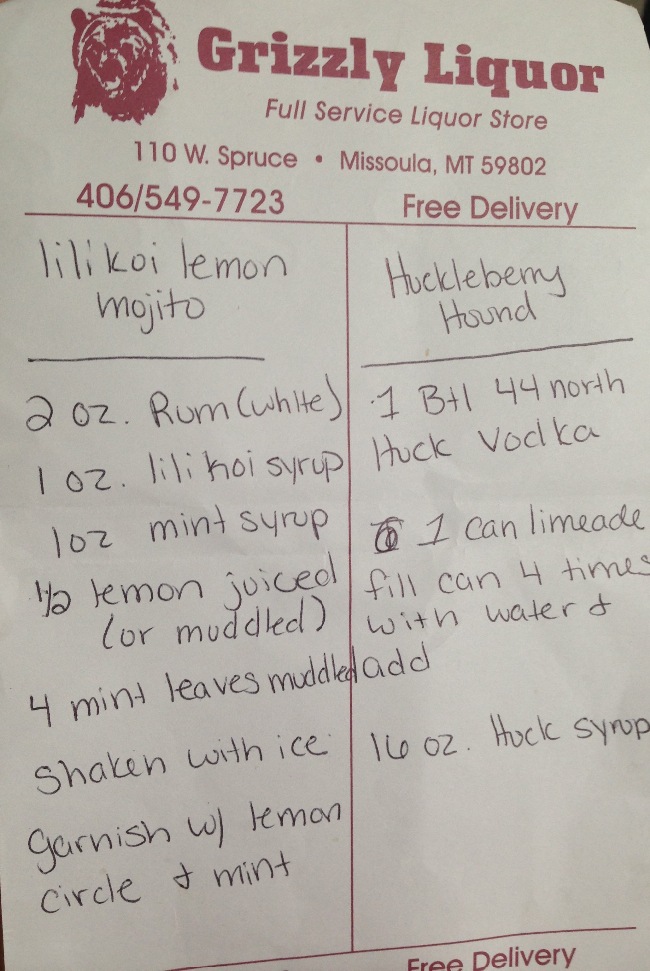 Grizzly Liquor
Full Service Liquor Store
110 W. Spruce • Missoula, MT 59802
406/549-7723 Free Delivery
lilikoi lemon
mojito
2 oz. Rum (white)
1 oz. lilikoi syrup
1oz mint syrup
1/2 lemon juiced
(or muddled)
4 mint leaves muddled
Shaken with ice
garnish w/ lemon
circle & mint
Huckleberry
Hound
1 Btl 44 north
Huck Vodka
1 can limeade
fill can 4 times
with water &
add
16 oz. Huck syrup
Free Delivery